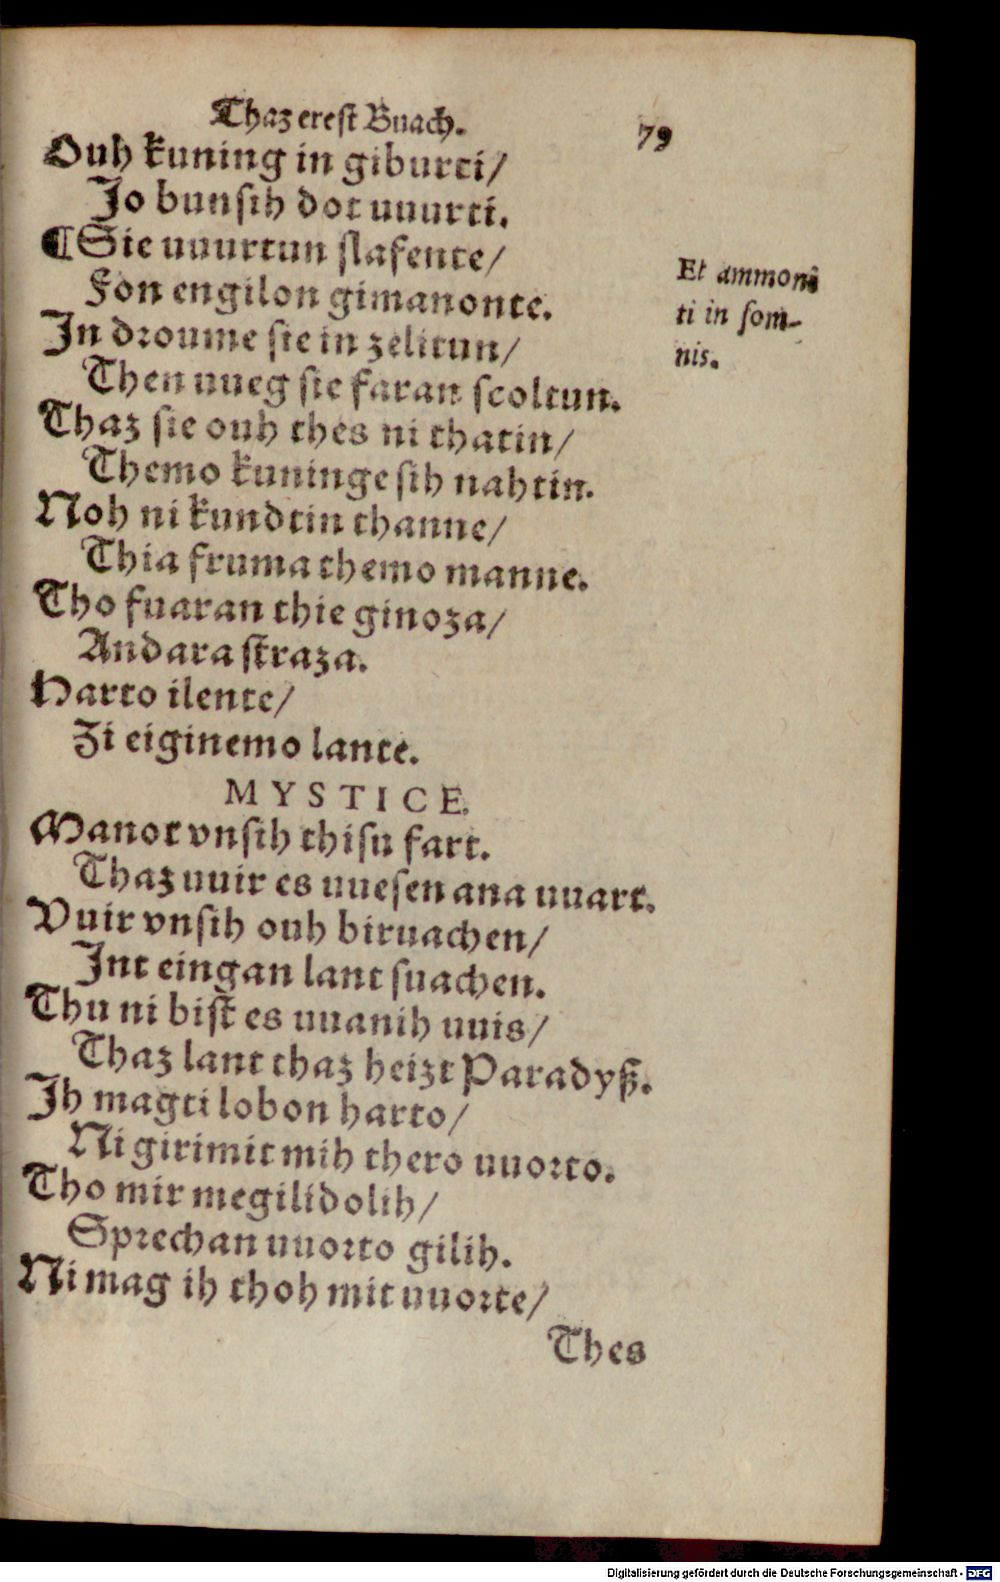 Thaz erest Buach. 79
Ouh kuning in giburti/
Jo bunsih dot uuurti.
¶Sie uuurtun slafente/
Fon engilon gimanonte.
Et ammoni
ti in som-
nis.
In droume sie in zelitun/
Then uueg sie faran scoltun.
Thaz sie ouh thes ni thatin/
Themo kuninge sih nahtin.
Noh ni kundtin thanne/
Thia fruma themo manne.
Tho fuaran thie ginoza/
Andara straza.
Harto ilente/
Zi eiginemo lante.
MYSTICE.
Manot vnsih thisu fart.
Thaz uuir es uuesen ana uuart.
Vuir vnsih ouh biruachen/
Int eingan lant suachen.
Thu ni bist es uuanih uuis/
Thaz lant thaz heizt Paradyß.
Ih magti lobon harto/
Ni girimit mih thero uuorto.
Tho mir megilidolih/
Sprechan uuorto gilih.
Ni mag ih thoh mit uuorte/
Thes
Digitalisierung gefördert durch die Deutsche Forschungsgemeinschaft - DFG